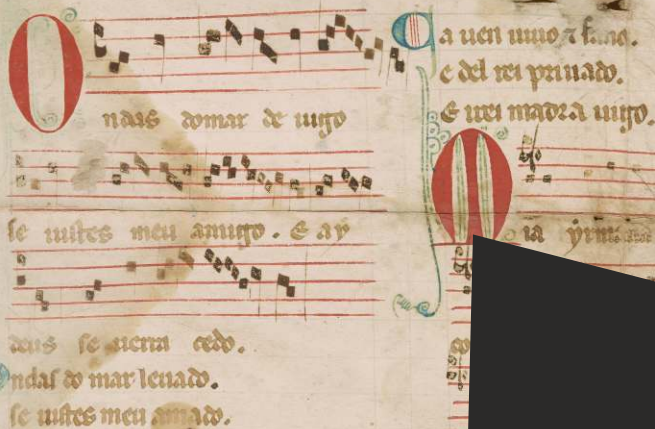 Ondas do mar de uigo
se uistes meu amigo. E ay
deus se uerra cedo.
Ondas do mar leuado.
se uistes meu amado.
Ca uen uiuo & sano.
e del rei priuado.
E irei madr a uigo.
Mia yrmana